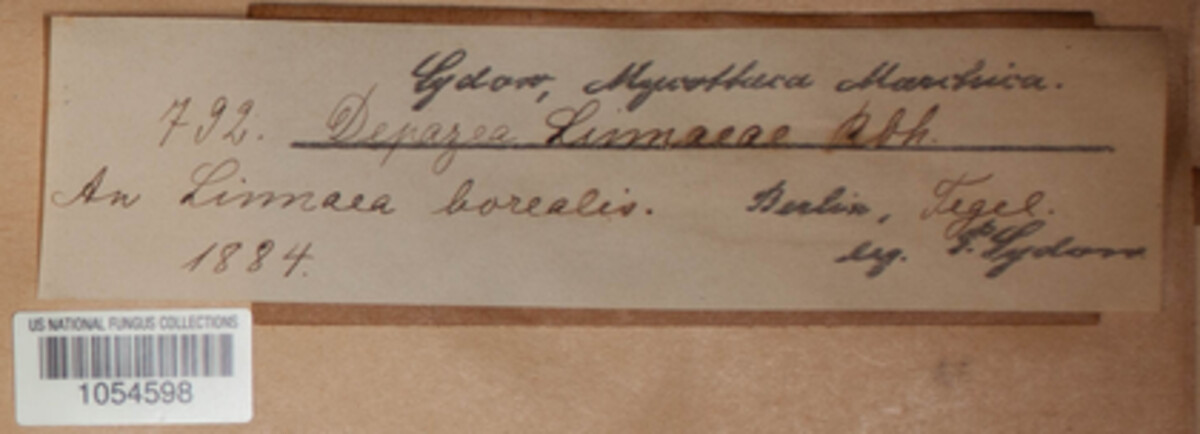 Sydow, Mycotheca Marchica.
792. Depazea Linnaeae Rbh.
An Linnaea borealis. Berlin, Tegel.
1884. leg. P. Sydow
US NATIONAL FUNGUS COLLECTIONS
1054598